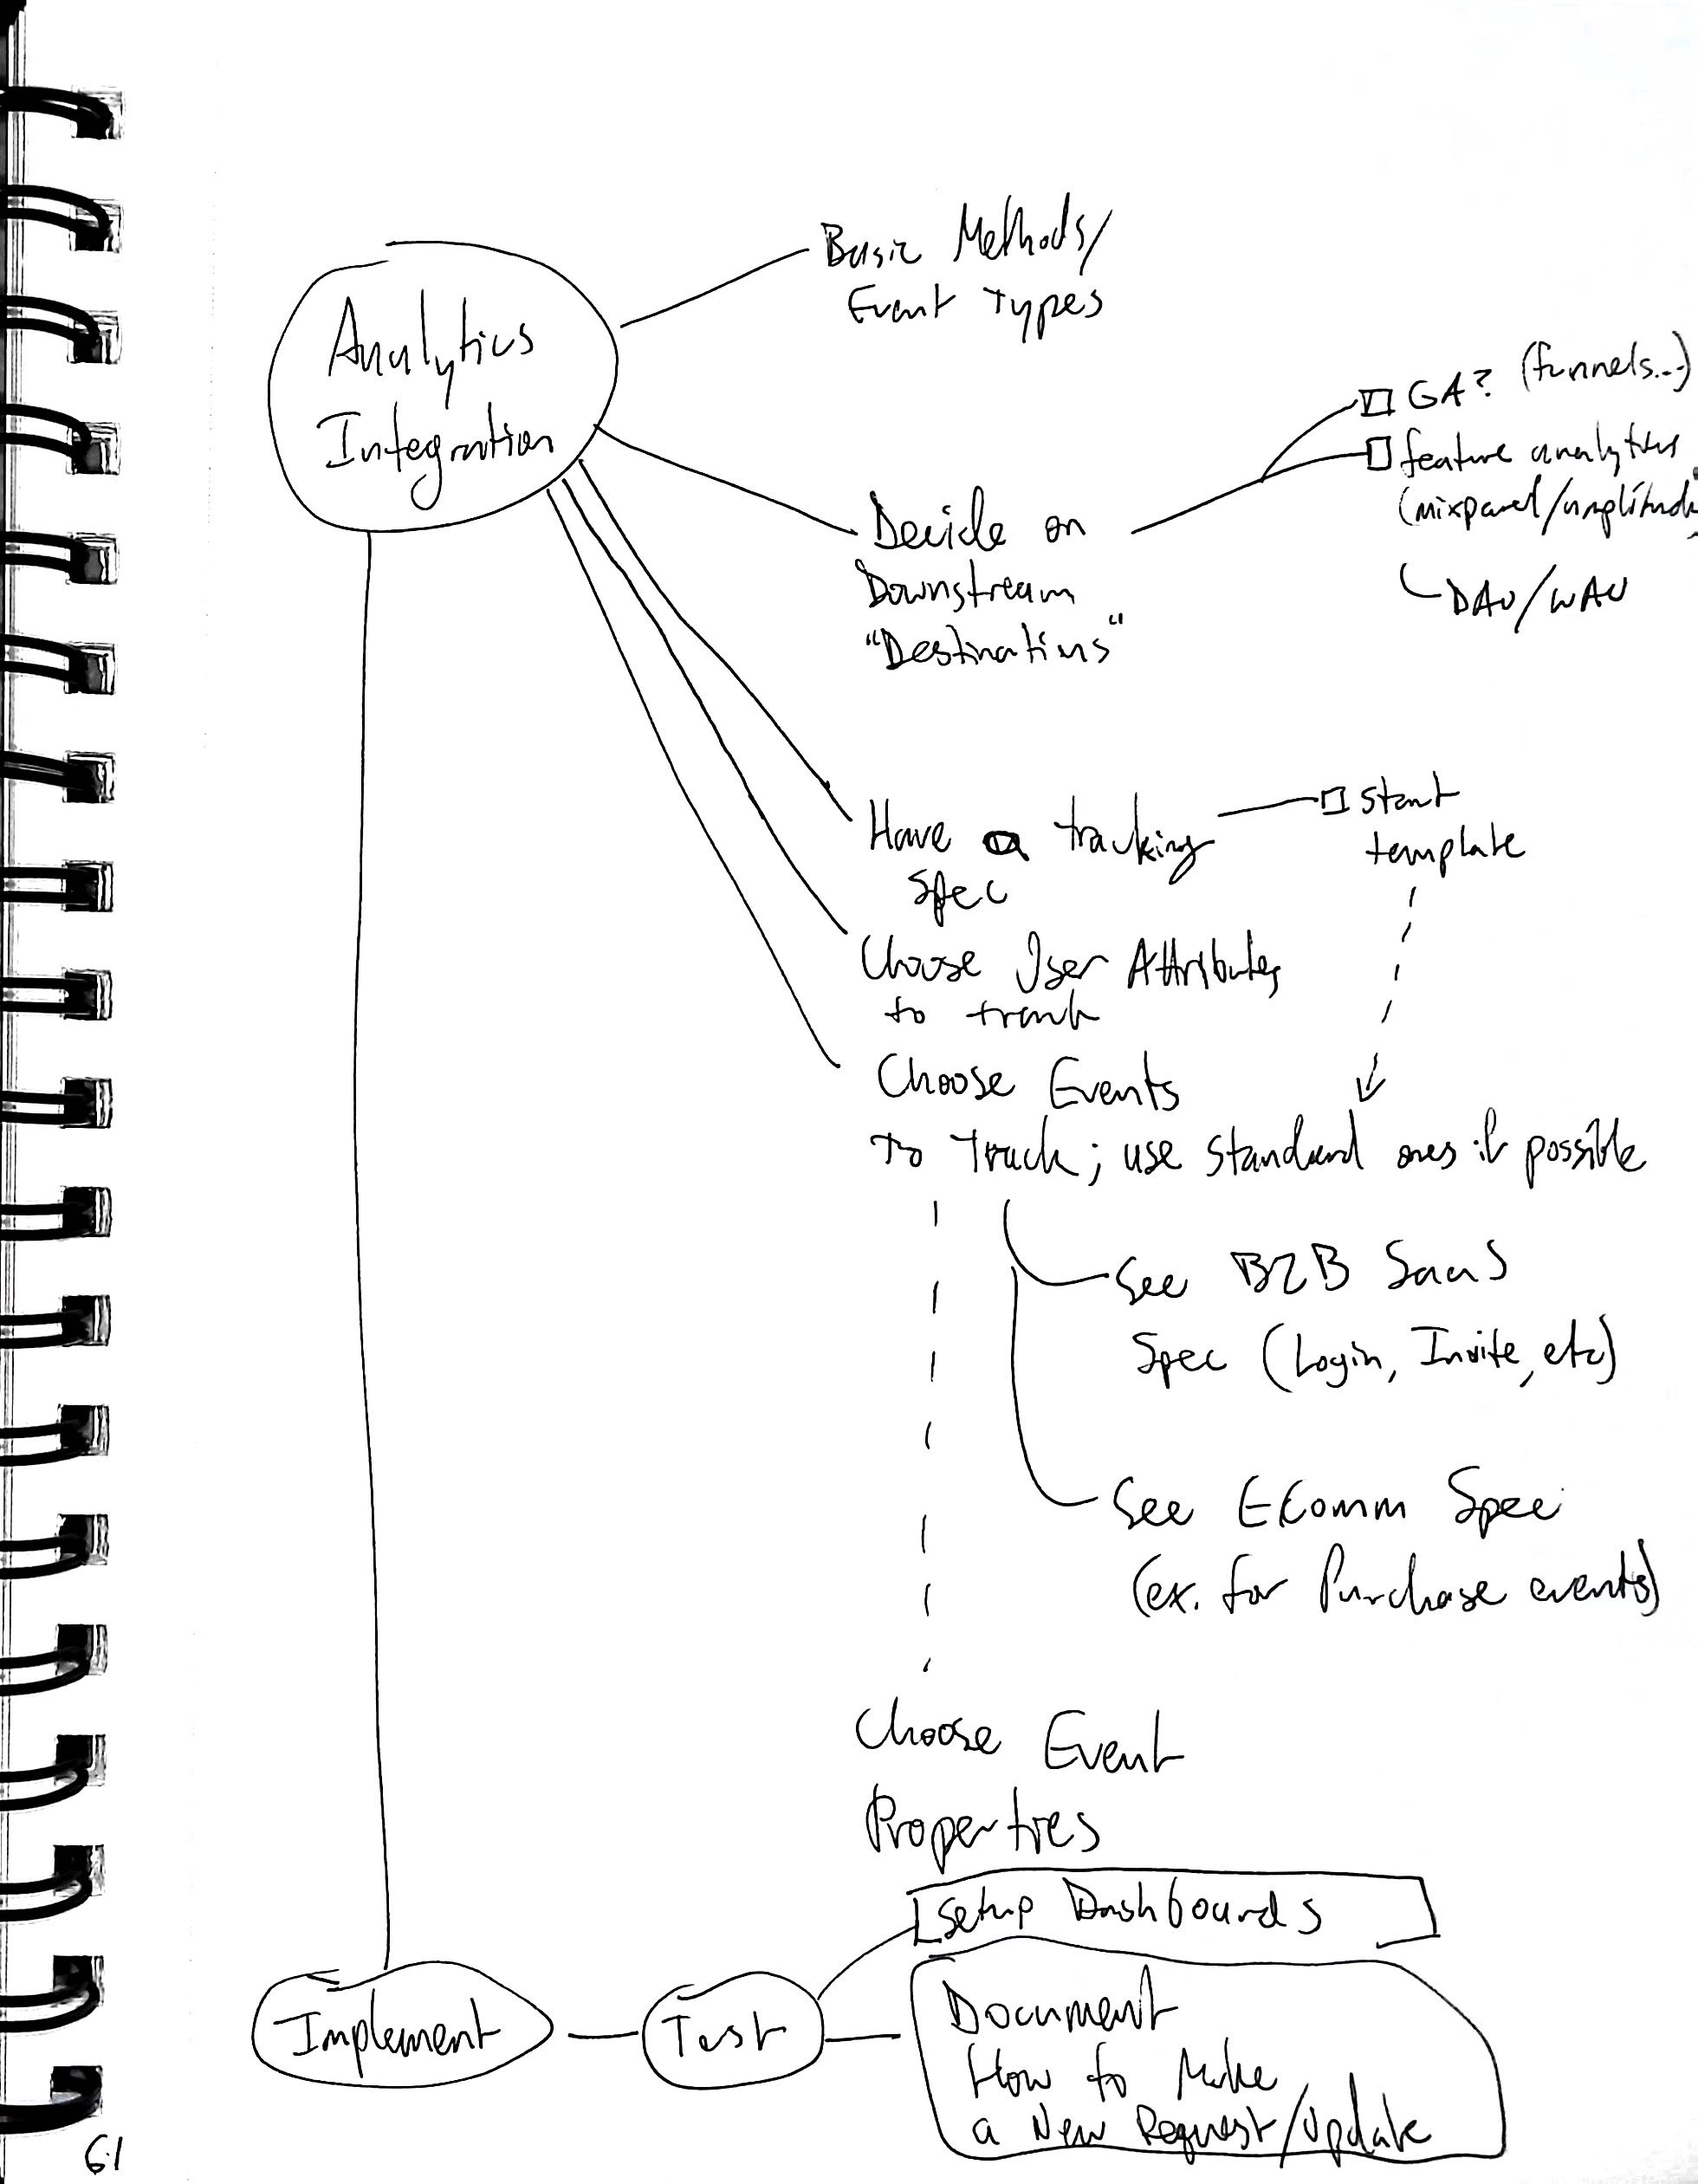 Basic Methods/
Event Types
Analytics
Integration
GA? (funnels...)
feature analytics
(mixpanel/amplitude,
DAU/WAU
Decide on
Downstream
"Destinations"
Have a tracking
Spec
start
template
Choose User Attributes
to track
Choose Events
To Track; use standard ones if possible
See B2B SaaS
Spec (Login, Invite, etc)
See EComm Spec
(ex. for Purchase events)
Choose Event
Properties
Setup Dashboards
Implement
Test
Document
How to Make
a New Request/Update
61